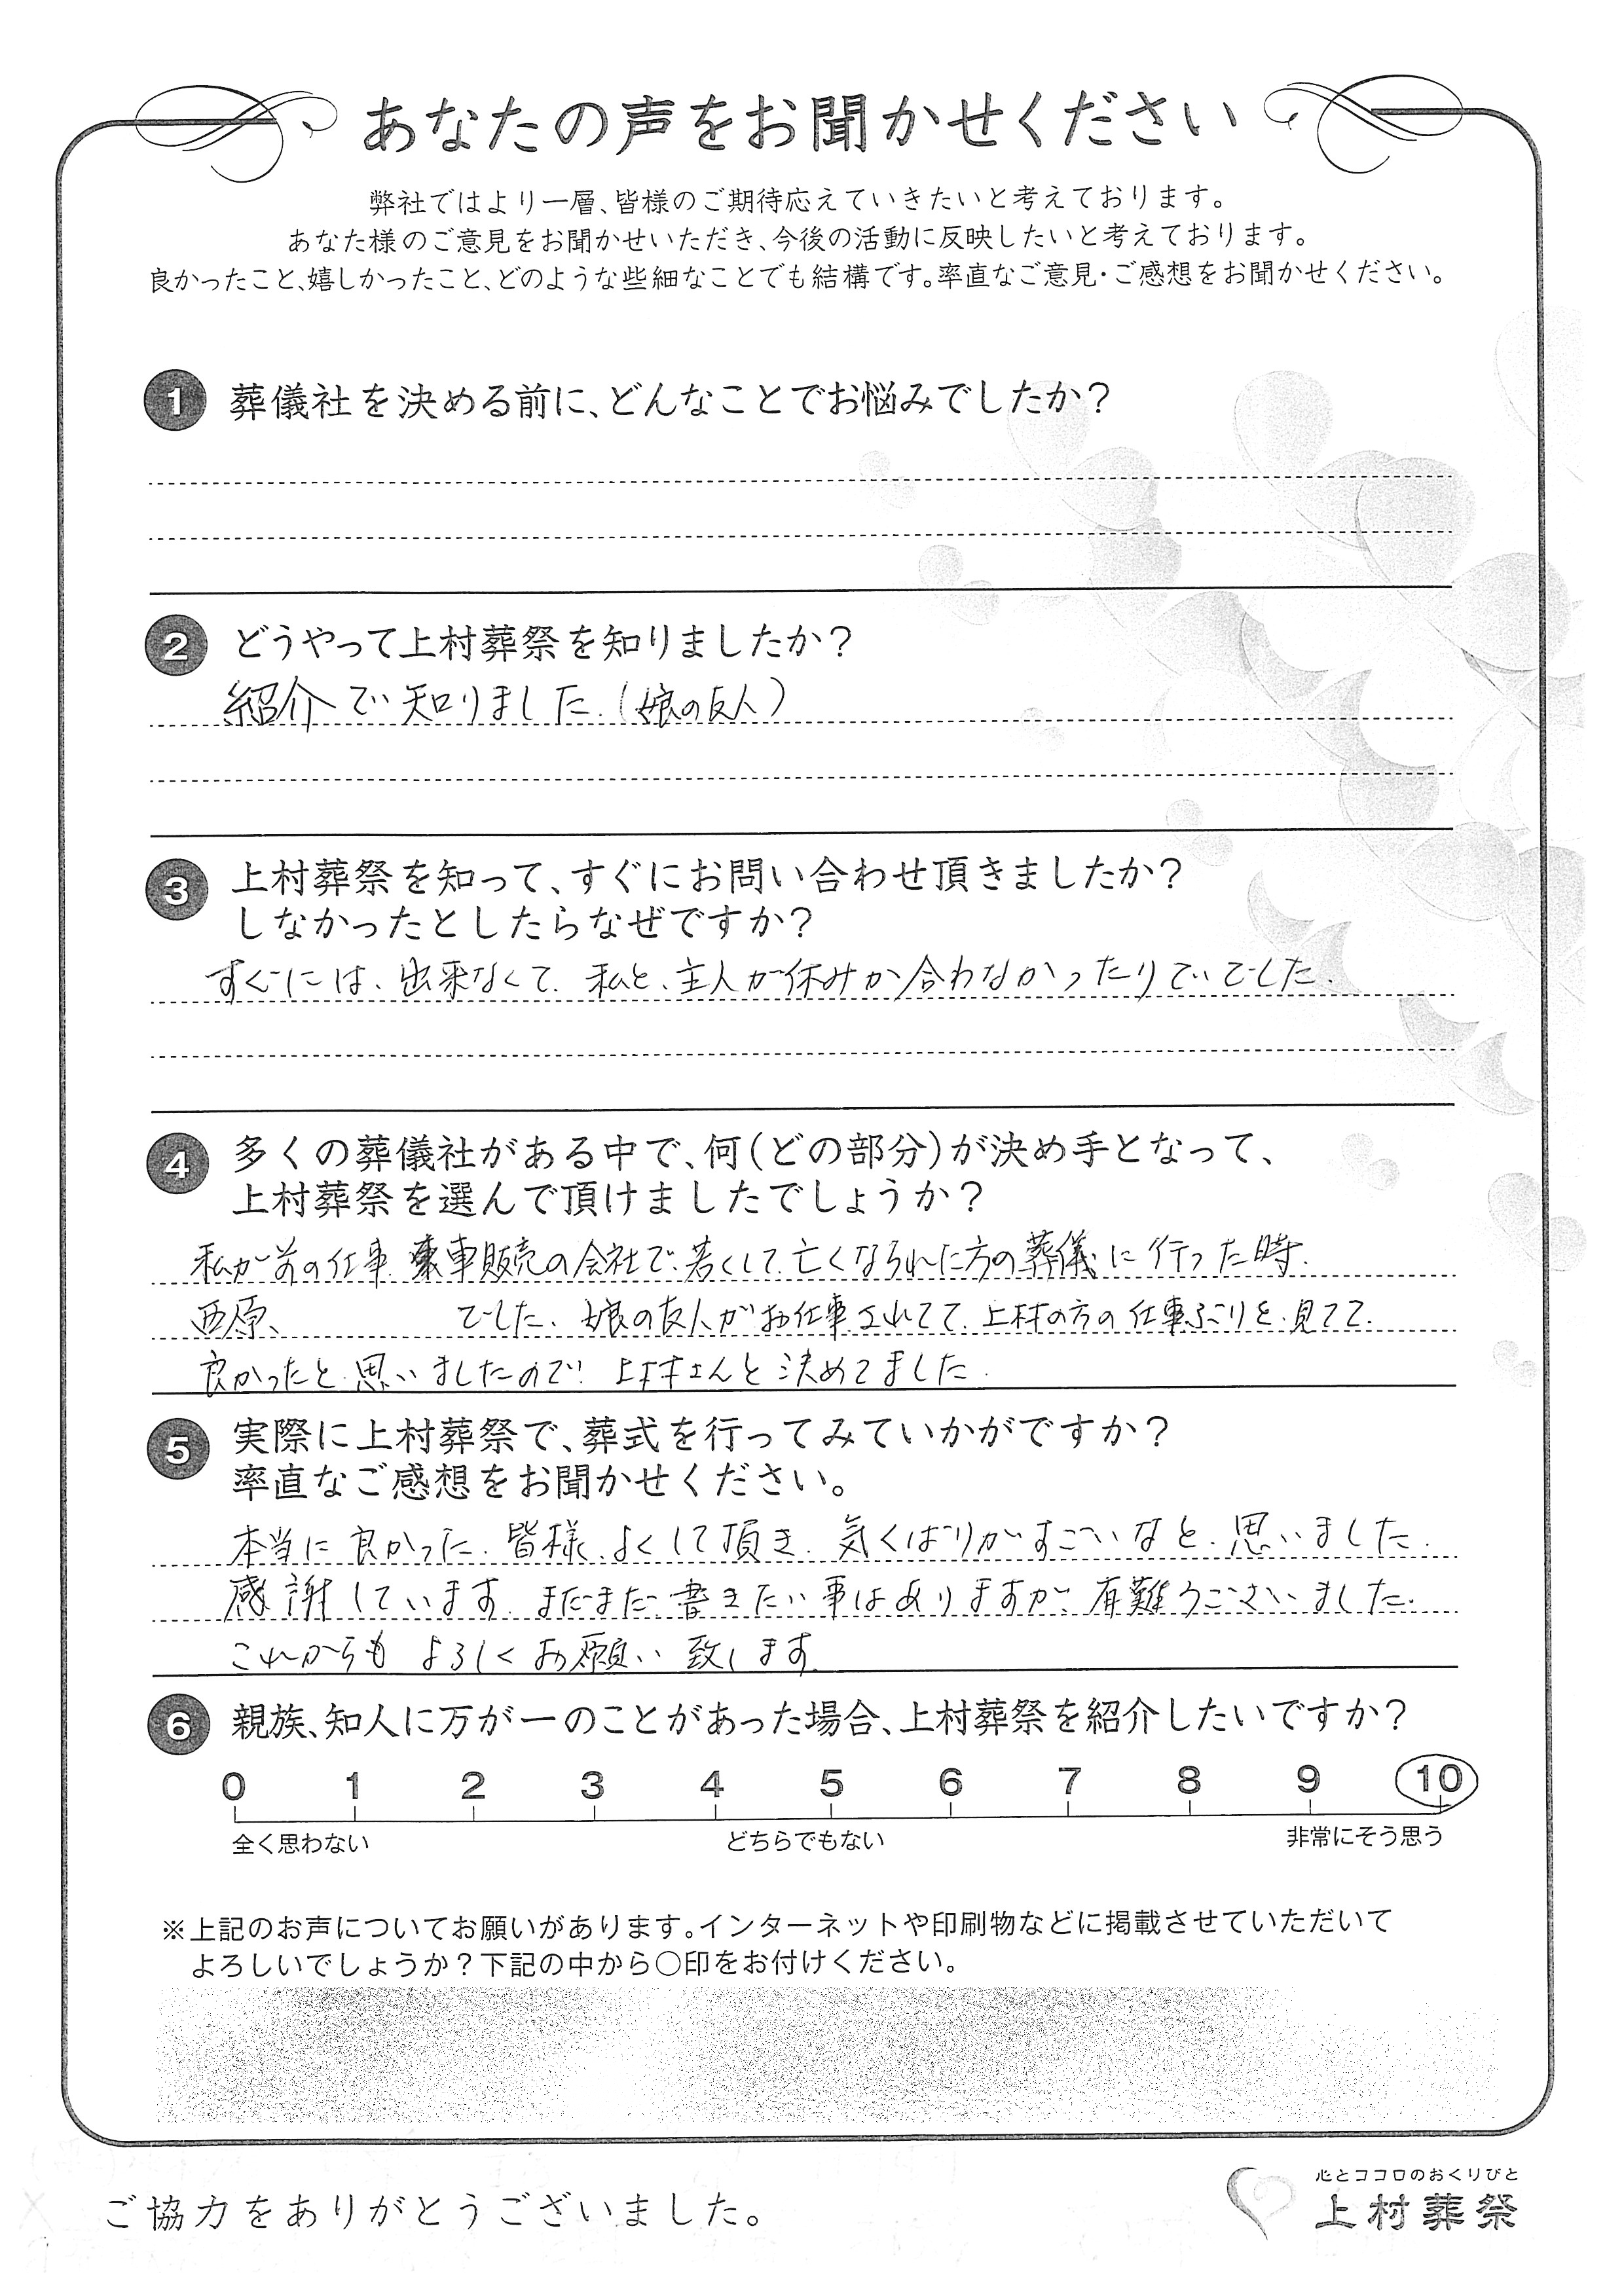 あなたの声をお聞かせください
弊社ではより一層、皆様のご期待応えていきたいと考えております。
あなた様のご意見をお聞かせいただき、今後の活動に反映したいと考えております。
良かったこと、嬉しかったこと、どのような些細なことでも結構です。率直なご意見・ご感想をお聞かせください。
1 葬儀社を決める前に、どんなことでお悩みでしたか?
2 どうやって上村葬祭を知りましたか?
紹介で知りました.(娘の友人)
3 上村葬祭を知って、すぐにお問い合わせ頂きましたか?
しなかったとしたらなぜですか?
すぐには、出来なくて.私と、主人が休みが合わなかったりででした.
4 多くの葬儀社がある中で、何(どの部分)が決め手となって、
上村葬祭を選んで頂けましたでしょうか?
私が前の仕事.車販売の会社で.若くして.亡くなられた方の葬儀に行った時.
西原、でした.娘の友人がお仕事されてて.上村の方の仕事ぶりを.見てて.
良かったと思いましたので!上村さんと決めてました.
5 実際に上村葬祭で、葬式を行ってみていかがですか?
率直なご感想をお聞かせください。
本当に良かった.皆様.よくして頂き.気くばりがすごいなと.思いました.
感謝しています.まだまだ.書きたい事はありますが.有難うございました.
これからもよろしくお願い致します.
6 親族、知人に万が一のことがあった場合、上村葬祭を紹介したいですか?
0 1 2 3 4 5 6 7 8 9 10
全く思わない どちらでもない 非常にそう思う
※上記のお声についてお願いがあります。インターネットや印刷物などに掲載させていただいて
よろしいでしょうか?下記の中から○印をお付けください。
ご協力をありがとうございました。
心とココロのおくりびと
上村葬祭